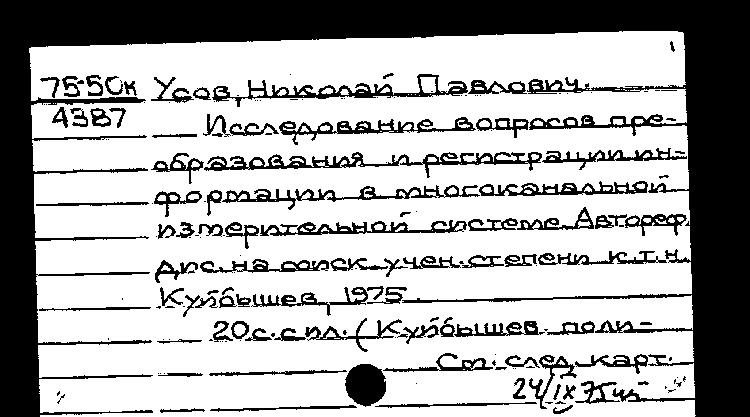 75-50к Усов, Николай Павлович.
4387
Исследование вопросов пре-
образования и регистрации ин-
формации в многоканальной
измерительной системе. Автореф.
дис. на соиск. учен. степени к.т.н.
Куйбышев, 1975.
20с. с ил. (Куйбышев. поли-
См. след. карт.
24/IX 75